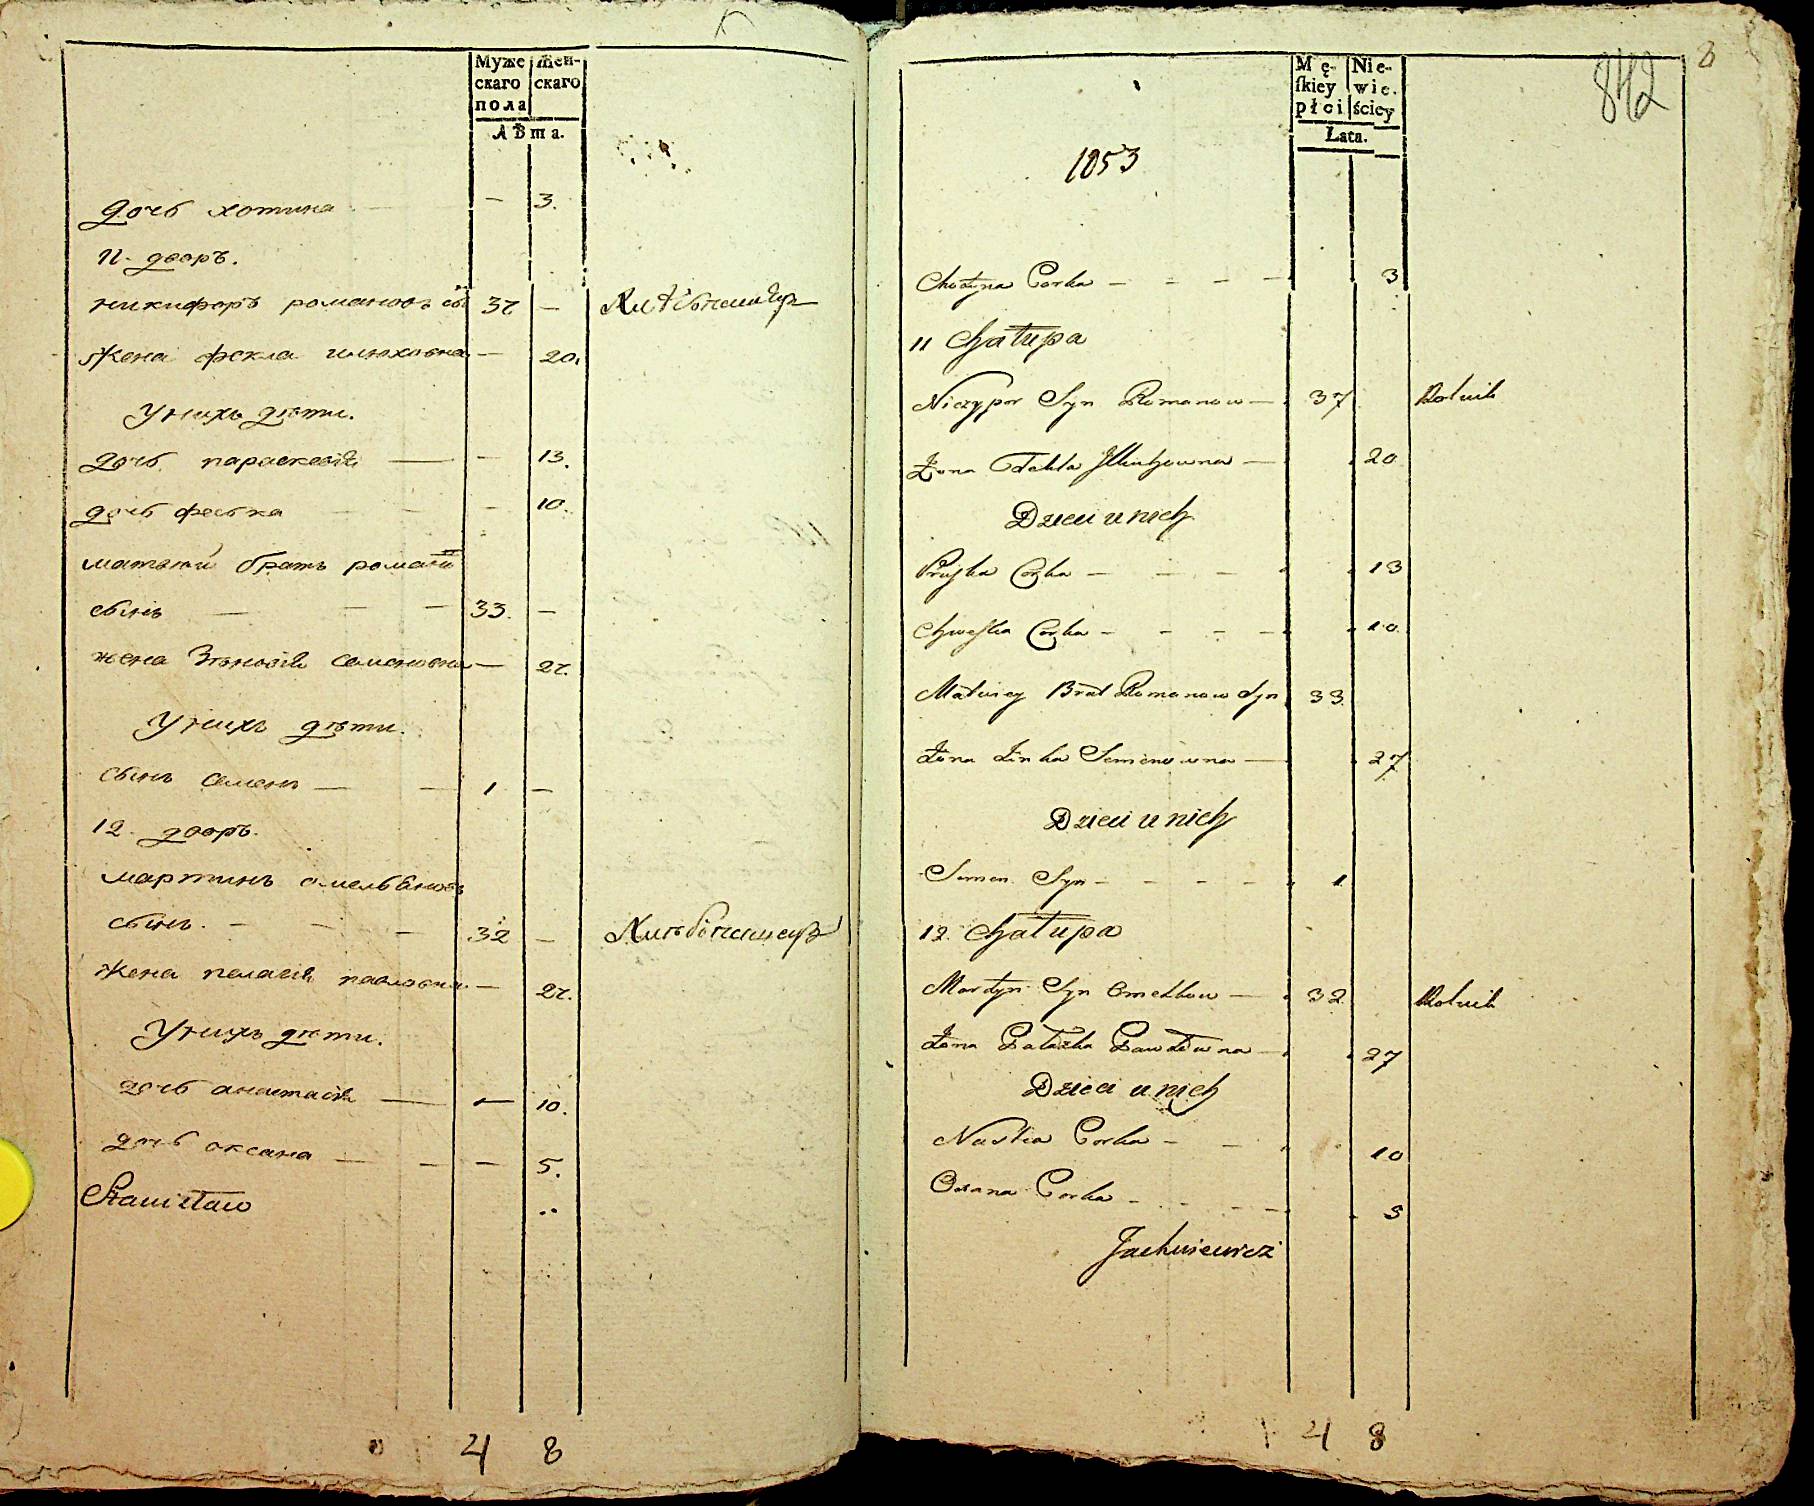 Муже Жен-
скаго скаго
пола
Лѣта.
дочь хотина — — 3.
11. дворъ.
никифоръ романовъ сы 37 — Хлѣбопашецъ
жена фекла илюховна — 20.
У нихъ дѣти.
дочь параскевія — — 13.
дочь феська — — — 10.
матвѣй братъ романо
сынъ — — — 33. —
жена Зѣновія семеновна — 27.
У нихъ дѣти.
сынъ семенъ — — 1 —
12. дворъ.
мартинъ омельяновъ
сынъ. — — — 32 — Хлѣбопашецъ
жена пелагія павловна — 27.
У нихъ дѣти.
дочь анастасія — — 10.
дочь оксана — — — 5.
Stanisław
4 8
Mę- Nie-
ſkiey wie.
płci ściey
Łata.
842
1053
Chotyna Corka — - - - 3
11 Chałupa
Niczypor Syn Romanow — 37 Rolnik
Żona Tekla Iluchowna — 20
Dzieci u nich
Pruska Corka — - - 13
Chweska Corka — - - - 10
Matwiey Brat Romanow Syn 33.
Żona Zinka Semenowna — 27
Dzieci u nich
Semen Syn — - - - 1.
12. Chałupa
Martyn Syn Omelkow — 32 Rolnik
Żona Pałazka Pawłowna — 27
Dzieci u nich
Nastia Corka - - 10
Oxana Corka - - - - 5
Jachniewicz
4 8